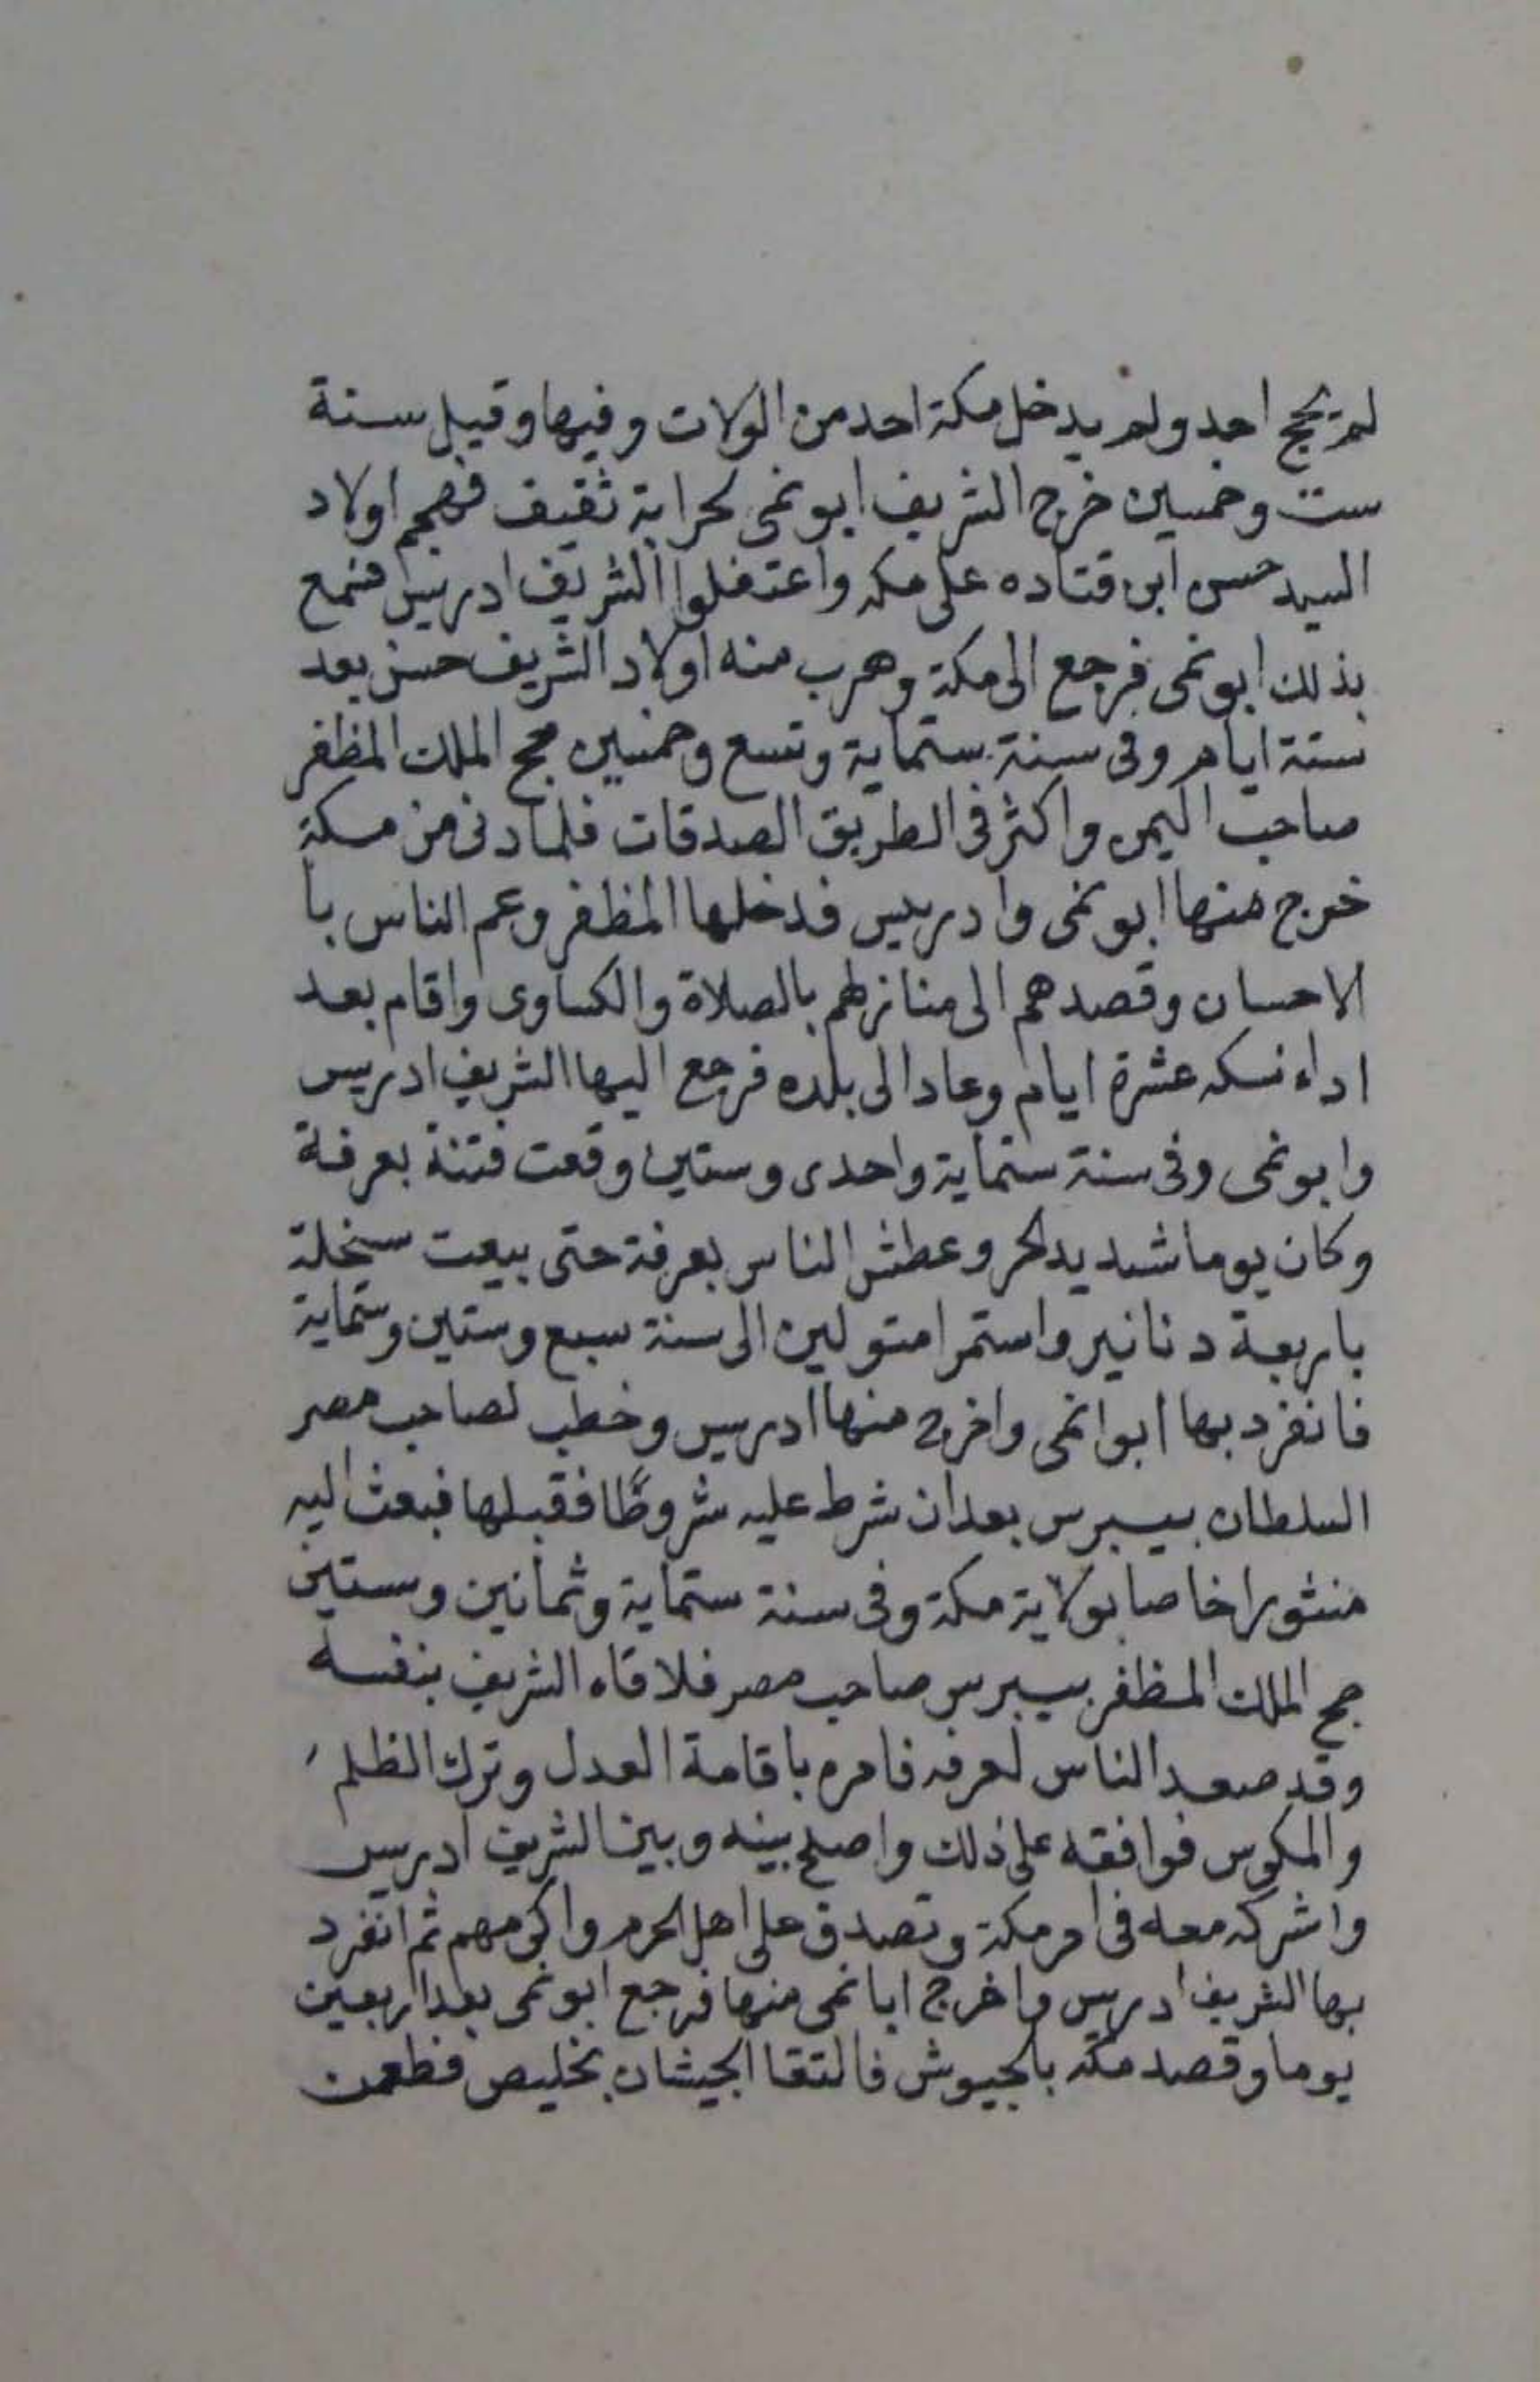 لم يحج احد ولم يدخل مكة احد من الولات وفيها وقيل سنة
ست وخمسين خرج الشريف ابو نمى لحرابة ثقيف فهجم اولاد
السيد حسن ابن قتاده على مكه واعتقلوا الشريف ادريس فسمع
بذلك ابو نمى فرجع الى مكة وهرب منه اولاد الشريف حسن بعد
ستة ايام وفى سنة ستماية وتسع وخمسين حج الملك المظفر
صاحب اليمن واكثر فى الطريق الصدقات فلما دنى من مكة
خرج منها ابو نمى وادريس فدخلها المظفر وعم الناس با
الاحسان وقصدهم الى منازلهم بالصلاة والكساوى واقام بعد
اداء نسكه عشرة ايام وعاد الى بلده فرجع اليها الشريف ادريس
وابو نمى وفى سنة ستماية واحدى وستين وقعت فتنة بعرفة
وكان يوما شديد الحر وعطش الناس بعرفة حتى بيعت سخلة
باربعة دنانير واستمرا متولين الى سنة سبع وستين وستماية
فانفرد بها ابوا نمى واخرج منها ادريس وخطب لصاحب مصر
السلطان بيبرس بعد ان شرط عليه شروطًا فقبلها فبعث اليه
منشورا خاصا بولاية مكة وفى سنة ستماية وثمانين وستين
حج الملك المظفر بيبرس صاحب مصر فلاقاه الشريف بنفسه
وقد صعد الناس لعرفه فامره باقامة العدل وترك الظلم
والمكوس فوافقه على ذلك واصلح بينه وبين الشريف ادريس
واشركه معه فى امر مكة وتصدق على اهل الحرم واكرمهم ثم انفرد
بها الشريف ادريس واخرج ابا نمى منها فرجع ابو نمى بعد اربعين
يوما وقصد مكه بالجيوش فالتقا الجيشان بخليص فطعن